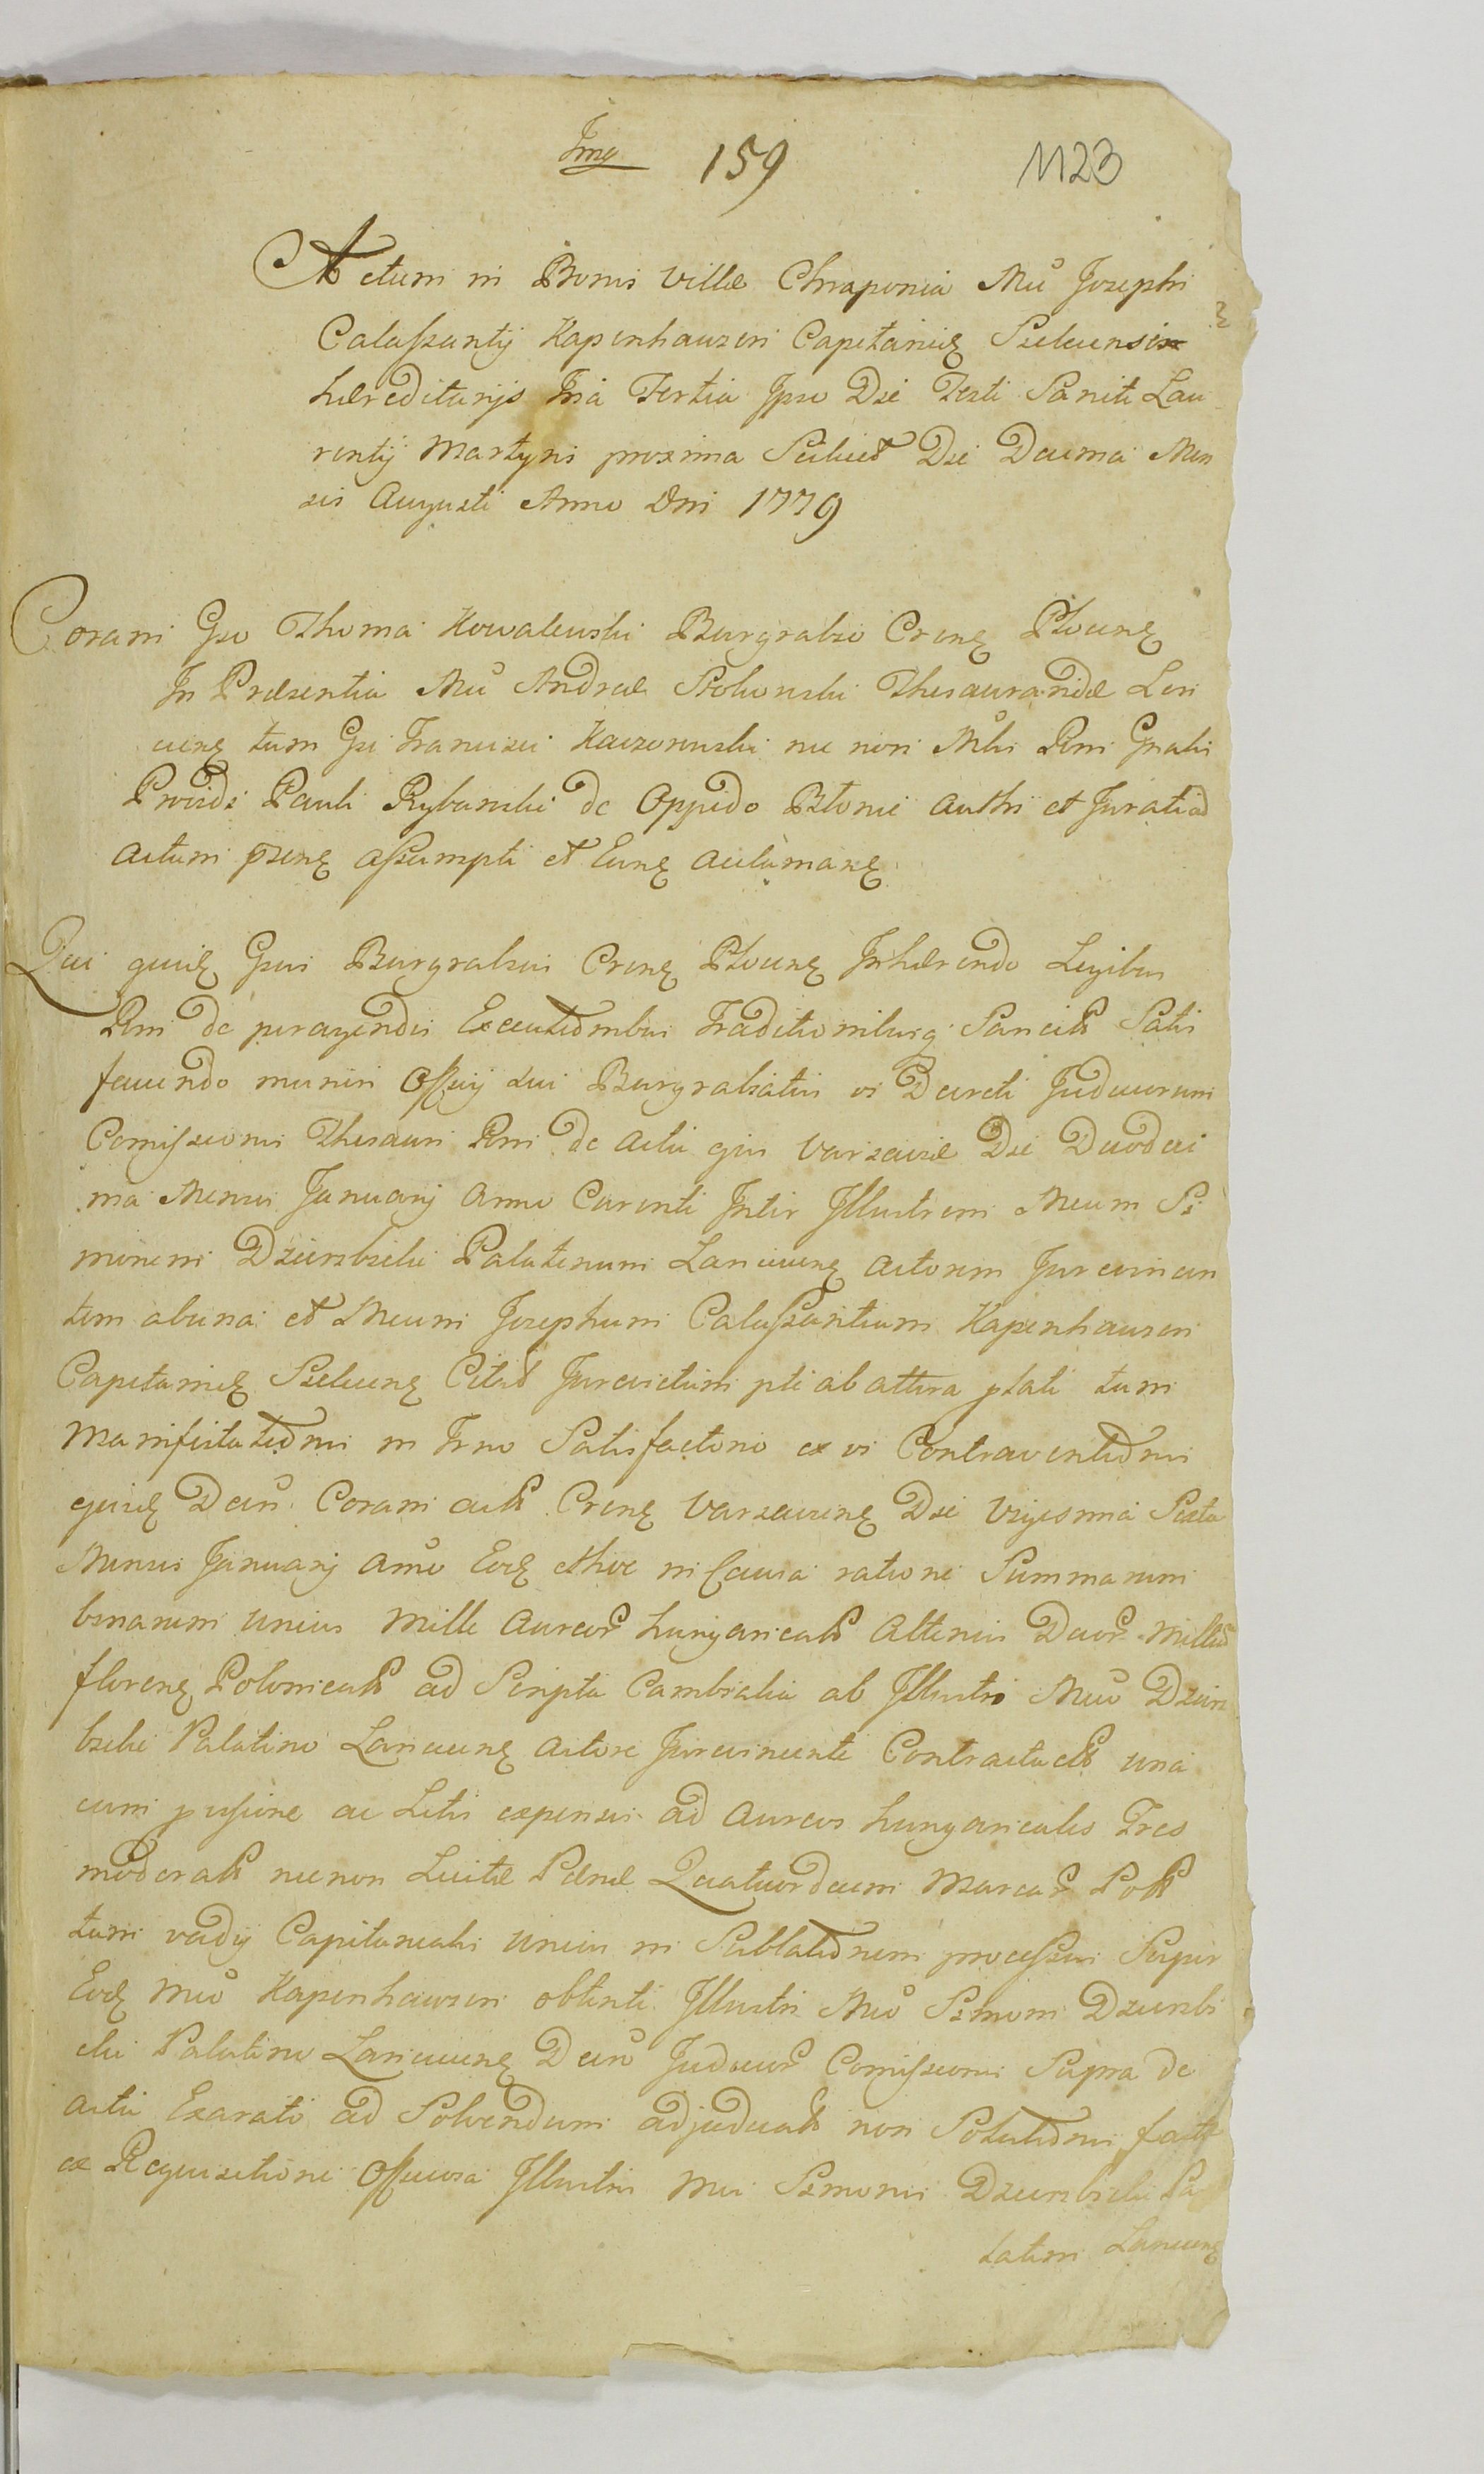 Img 159 1123
Actum in Bonis Villæ Chraponia Mci Josephi
Calaſsantij Kapenhauzen Capitanię Szelunensis
hæreditarijs Fria Tertia Ipso Die Festi Sancti Lau
rentij Martyris proxima Scilicet Die Decima Men
sis Augusti Anno Dni 1779
Coram Gso Thoma Kowalewski Burgrabio Crenę Płocenę
In Præsentia Mci Andreæ Rokowski Thesaurandæ
cienę tum Gsi Francisci Kaczorowski nec non Mlis Rni Gnalis
Providi Pauli Rybanski de Oppido Błonie authi et Jurati ad
actum pżenę aſsumpti et Eunę
Qui quidę Gsus Burgrabius Crenę Płocenę Inhærendo Legibus
Rni de peragendis Executionibus Traditionibusq Sancitis Satis
faciendo muneri Officij sui Burgrabiatus vi Decreti Judiciorum
Comiſsionis Thesauri Rni de actu ejus Varsaviæ Die Duodeci
ma Mensis Januarij Anno Curenti Inter Illustrem Mcum Si
monem Dzierzbicki Palatinum Lancicienę Actorem Jurevincen
tem ab una et Mcum Josephum Calaſsantium Kapenhauzen
Capitanię Szelunenę Citat Jurevictum pte ab altera ptati tum
Manifestationis in Trno Satisfactorio ex vi Contraventionis
ejusdę Decri Coram actis Crenę Varsavienę Die Vigesima Sexta
Mensis Januarij Anno Eodę et hoc in Causa ratione Summarum
binarum unius Mille Aureor hungaricalis Alterius Duor Milliu
florenę Polonicalis ad Scripta Cambialia ab Illustri Mco Dzierz
bicki Palatino Lancicienę Actore Jurevincente Contractalis una
cum provisione ac Litis expensis ad Aureos hungaricales Tres
moderatis nec non Luitæ Pænæ Quatuordecim Marcar Polk
tum vadij Capitanealis unius in Sublationem proceſsus Super
Eodę Mco Kapenhauzen obtenti Illustri Mco Simoni Dzierzbi
cki Palatino Lancicienę Decro Judicior Comiſsionis Supra de
actu Exarato ad Solvendum adjudicatis non Solutionis facte
ex Requisitione Officiosa Illustris Mci Simonis Dzierzbicki Pa
latini Lancicienę